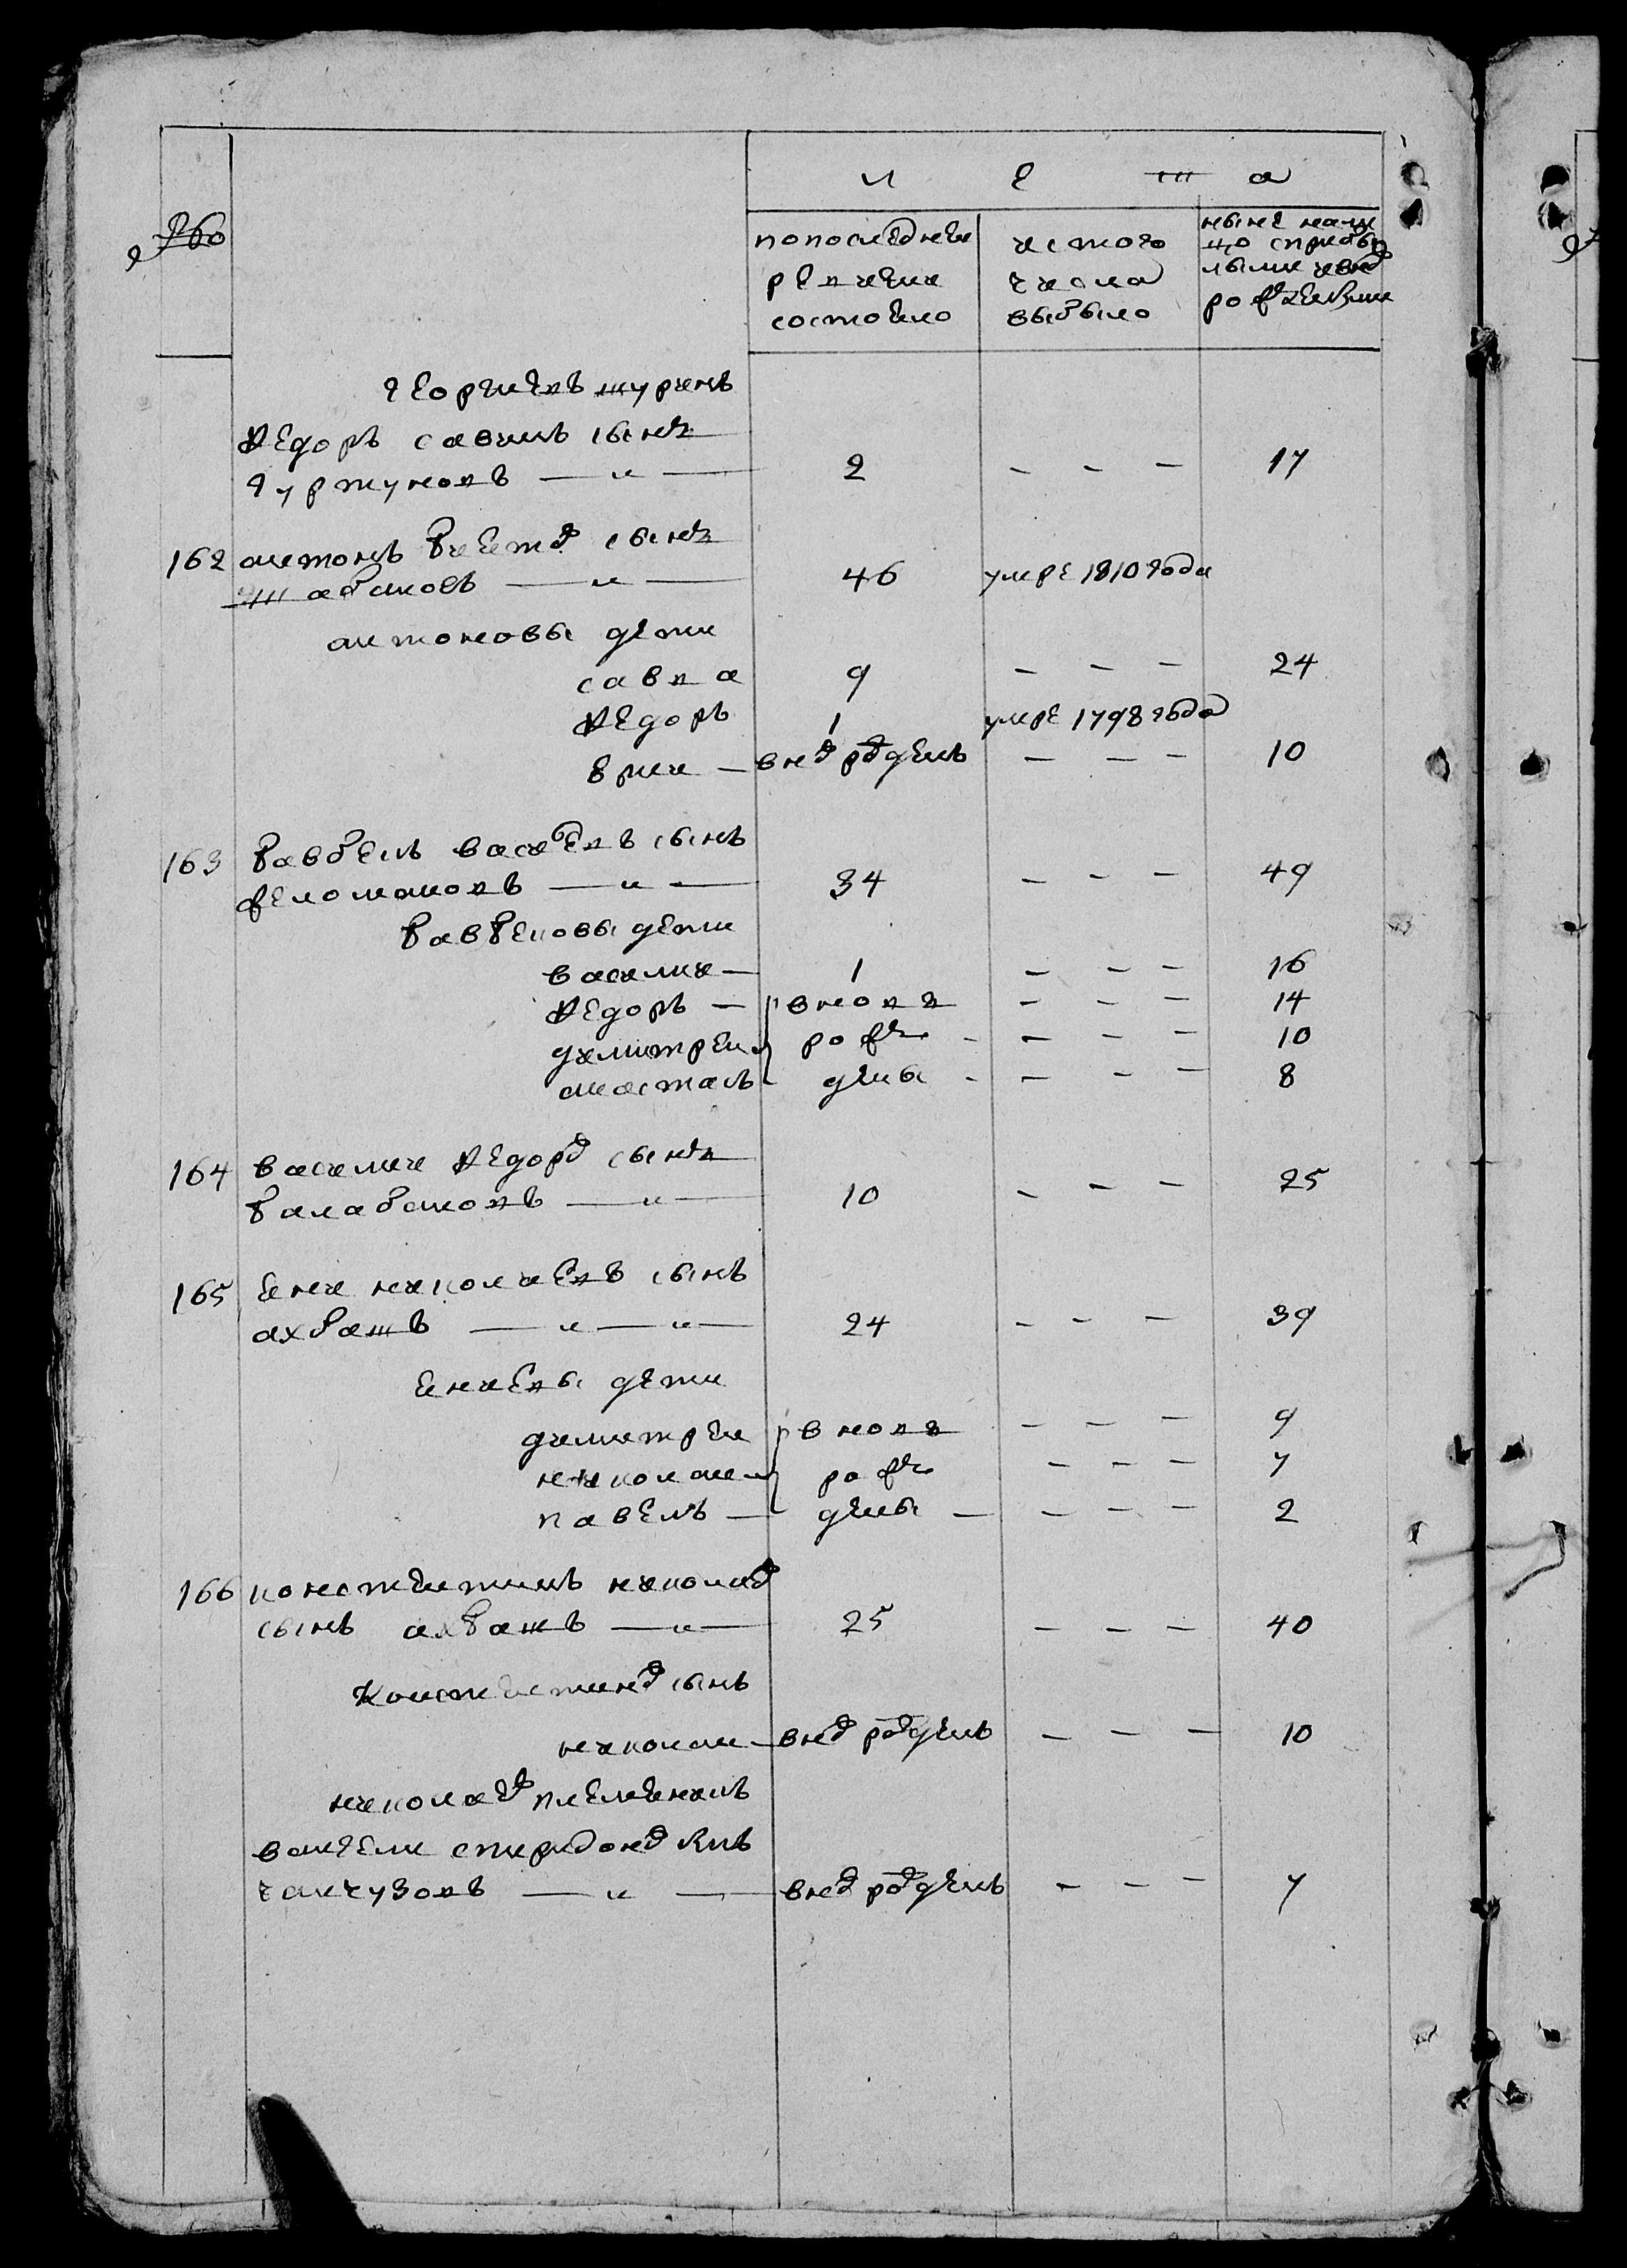 л е т а
по последней
ревизии
состояло
ис того
числа
выбыло
ныне нали
цо с прибы
лыми и внов
рожденными
Георгиевъ шуринъ
Федоръ Савинъ сынъ
Гуржуновъ — " — 2 - - - 17
162 антонъ сынъ
шабановъ — " — 46 умре 1810 года
антоновы дети
савва 9 - - - 24
Федоръ 1 умре 1798 года
— внов рожденъ - - - 10
163 Павелъ васильевъ сынъ
— " — 34 - - - 49
Павеловы дети
василий — 1 - - - 16
Федоръ — вновъ - - - 14
димитрей рож - - - 10
анастасъ дены - - - 8
164 василий Федоров сынъ
балабановъ — " — 10 - - - 25
165 Яни николаевъ сынъ
ахбашъ — " — " — 24 - - - 39
Яниевы дети
димитрей вновъ - - - 9
николай рож - - - 7
павелъ — дены — - - - 2
166 константинъ николаев
сынъ ахбашъ — " — 25 - - - 40
Константинов сынъ
николай — внов рожденъ - - - 10
николаев племянникъ
вангели спиридонов сынъ
— " — внов рожденъ - - - 7